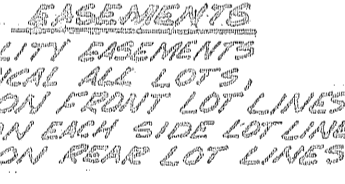 EASEMENTS
LITY EASEMENTS
ICAL ALL LOTS,
ON FRONT LOT LINES
ON EACH SIDE LOT LINE
ON REAR LOT LINES